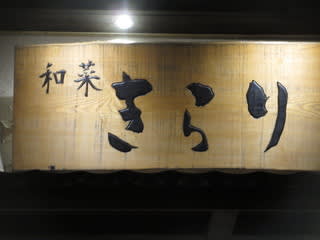 和菜 きらり